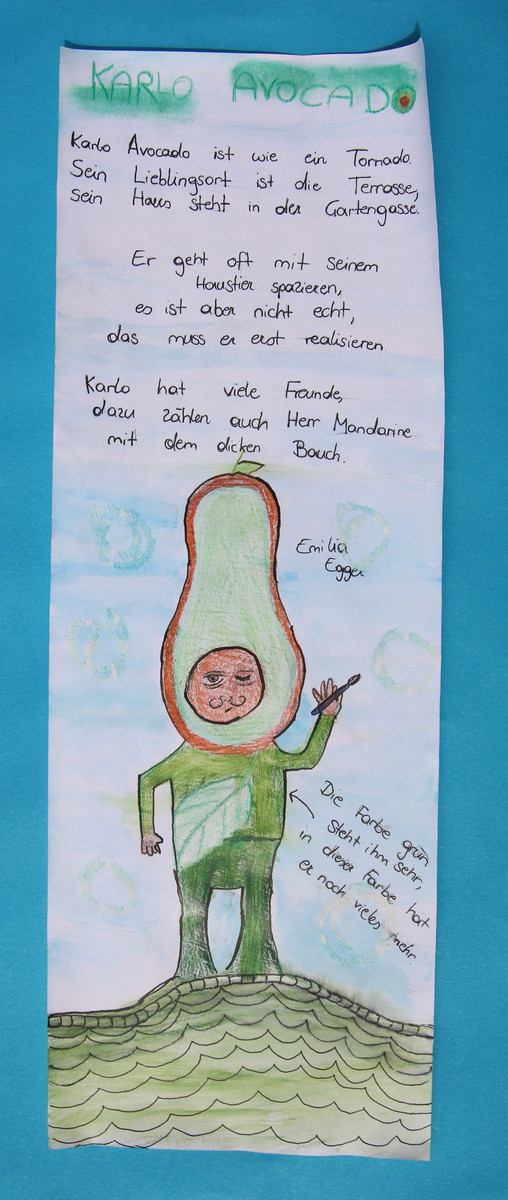 KARLO AVOCADO
Karlo Avocado ist wie ein Tornado.
Sein Lieblingsort ist die Terrasse,
sein Haus steht in der Gartengasse.
Er geht oft mit seinem
Haustier spazieren,
es ist aber nicht echt,
das muss er erst realisieren
Karlo hat viele Freunde,
dazu zählen auch Herr Mandarine
mit dem dicken Bauch.
Emilia
Egger
Die Farbe grün
steht ihm sehr,
in dieser Farbe hat
er noch vieles mehr.